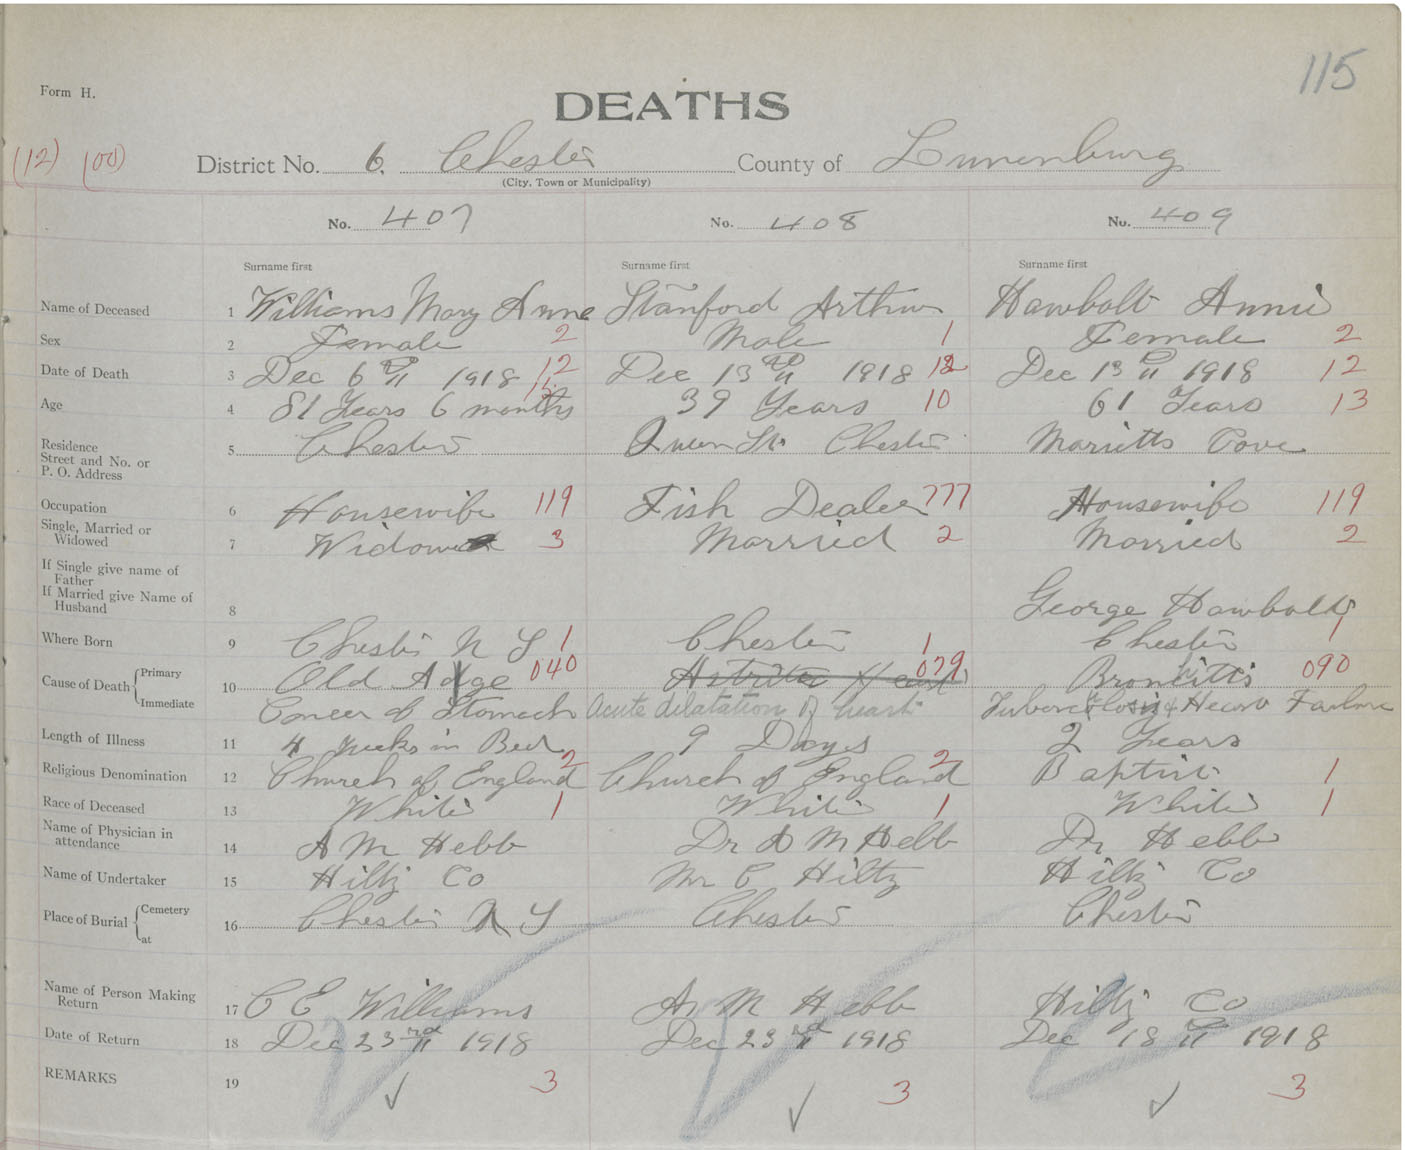 115
Form H.
DEATHS
(12) (00) District No. 6. Chester County of Lunenburg
(City, Town or Municipality)
No. 407 No. 408 No. 409
Surname first Surname first Surname first
Name of Deceased 1 Williams Mary Anne Stanford Arthur Hawbolt Annie
Sex 2 Female 2 Male 1 Female 2
Date of Death 3 Dec 6th 1918 12 Dec 13th 1918 12 Dec 13th 1918 12
Age 4 81 Years 6 months 39 Years 10 61 Years 13
Residence
Street and No. or 5 Chester Queen St. Chester Marietts Cove
P. O. Address
Occupation 6 Housewife 119 Fish Dealer 777 Housewife 119
Single, Married or
Widowed 7 Widow 3 Married 2 Married 2
If Single give name of
Father
If Married give Name of
Husband 8 George Hawbolt
Where Born 9 Chester N S 1 Chester 1 Chester 1
Cause of Death Primary 10 Old Age 040 079 Bronkitts 090
Immediate Cancer of Stomach Acute dilatation of heart Tuberculosis & Heart Failure
Length of Illness 11 4 Weeks in Bed 9 Days 2 Years
Religious Denomination 12 Church of England 2 Church of England 2 Baptist 1
Race of Deceased 13 White 1 White 1 White 1
Name of Physician in
attendance 14 A M Hebb Dr A M Hebb Dr Hebb
Name of Undertaker 15 Hiltz Co Mr C Hiltz Hiltz Co
Place of Burial Cemetery 16 Chester N S Chester Chester
at
Name of Person Making
Return 17 C E Williams A M Hebb Hiltz Co
Date of Return 18 Dec 23rd 1918 Dec 23rd 1918 Dec 18th 1918
REMARKS 19 3 3 3